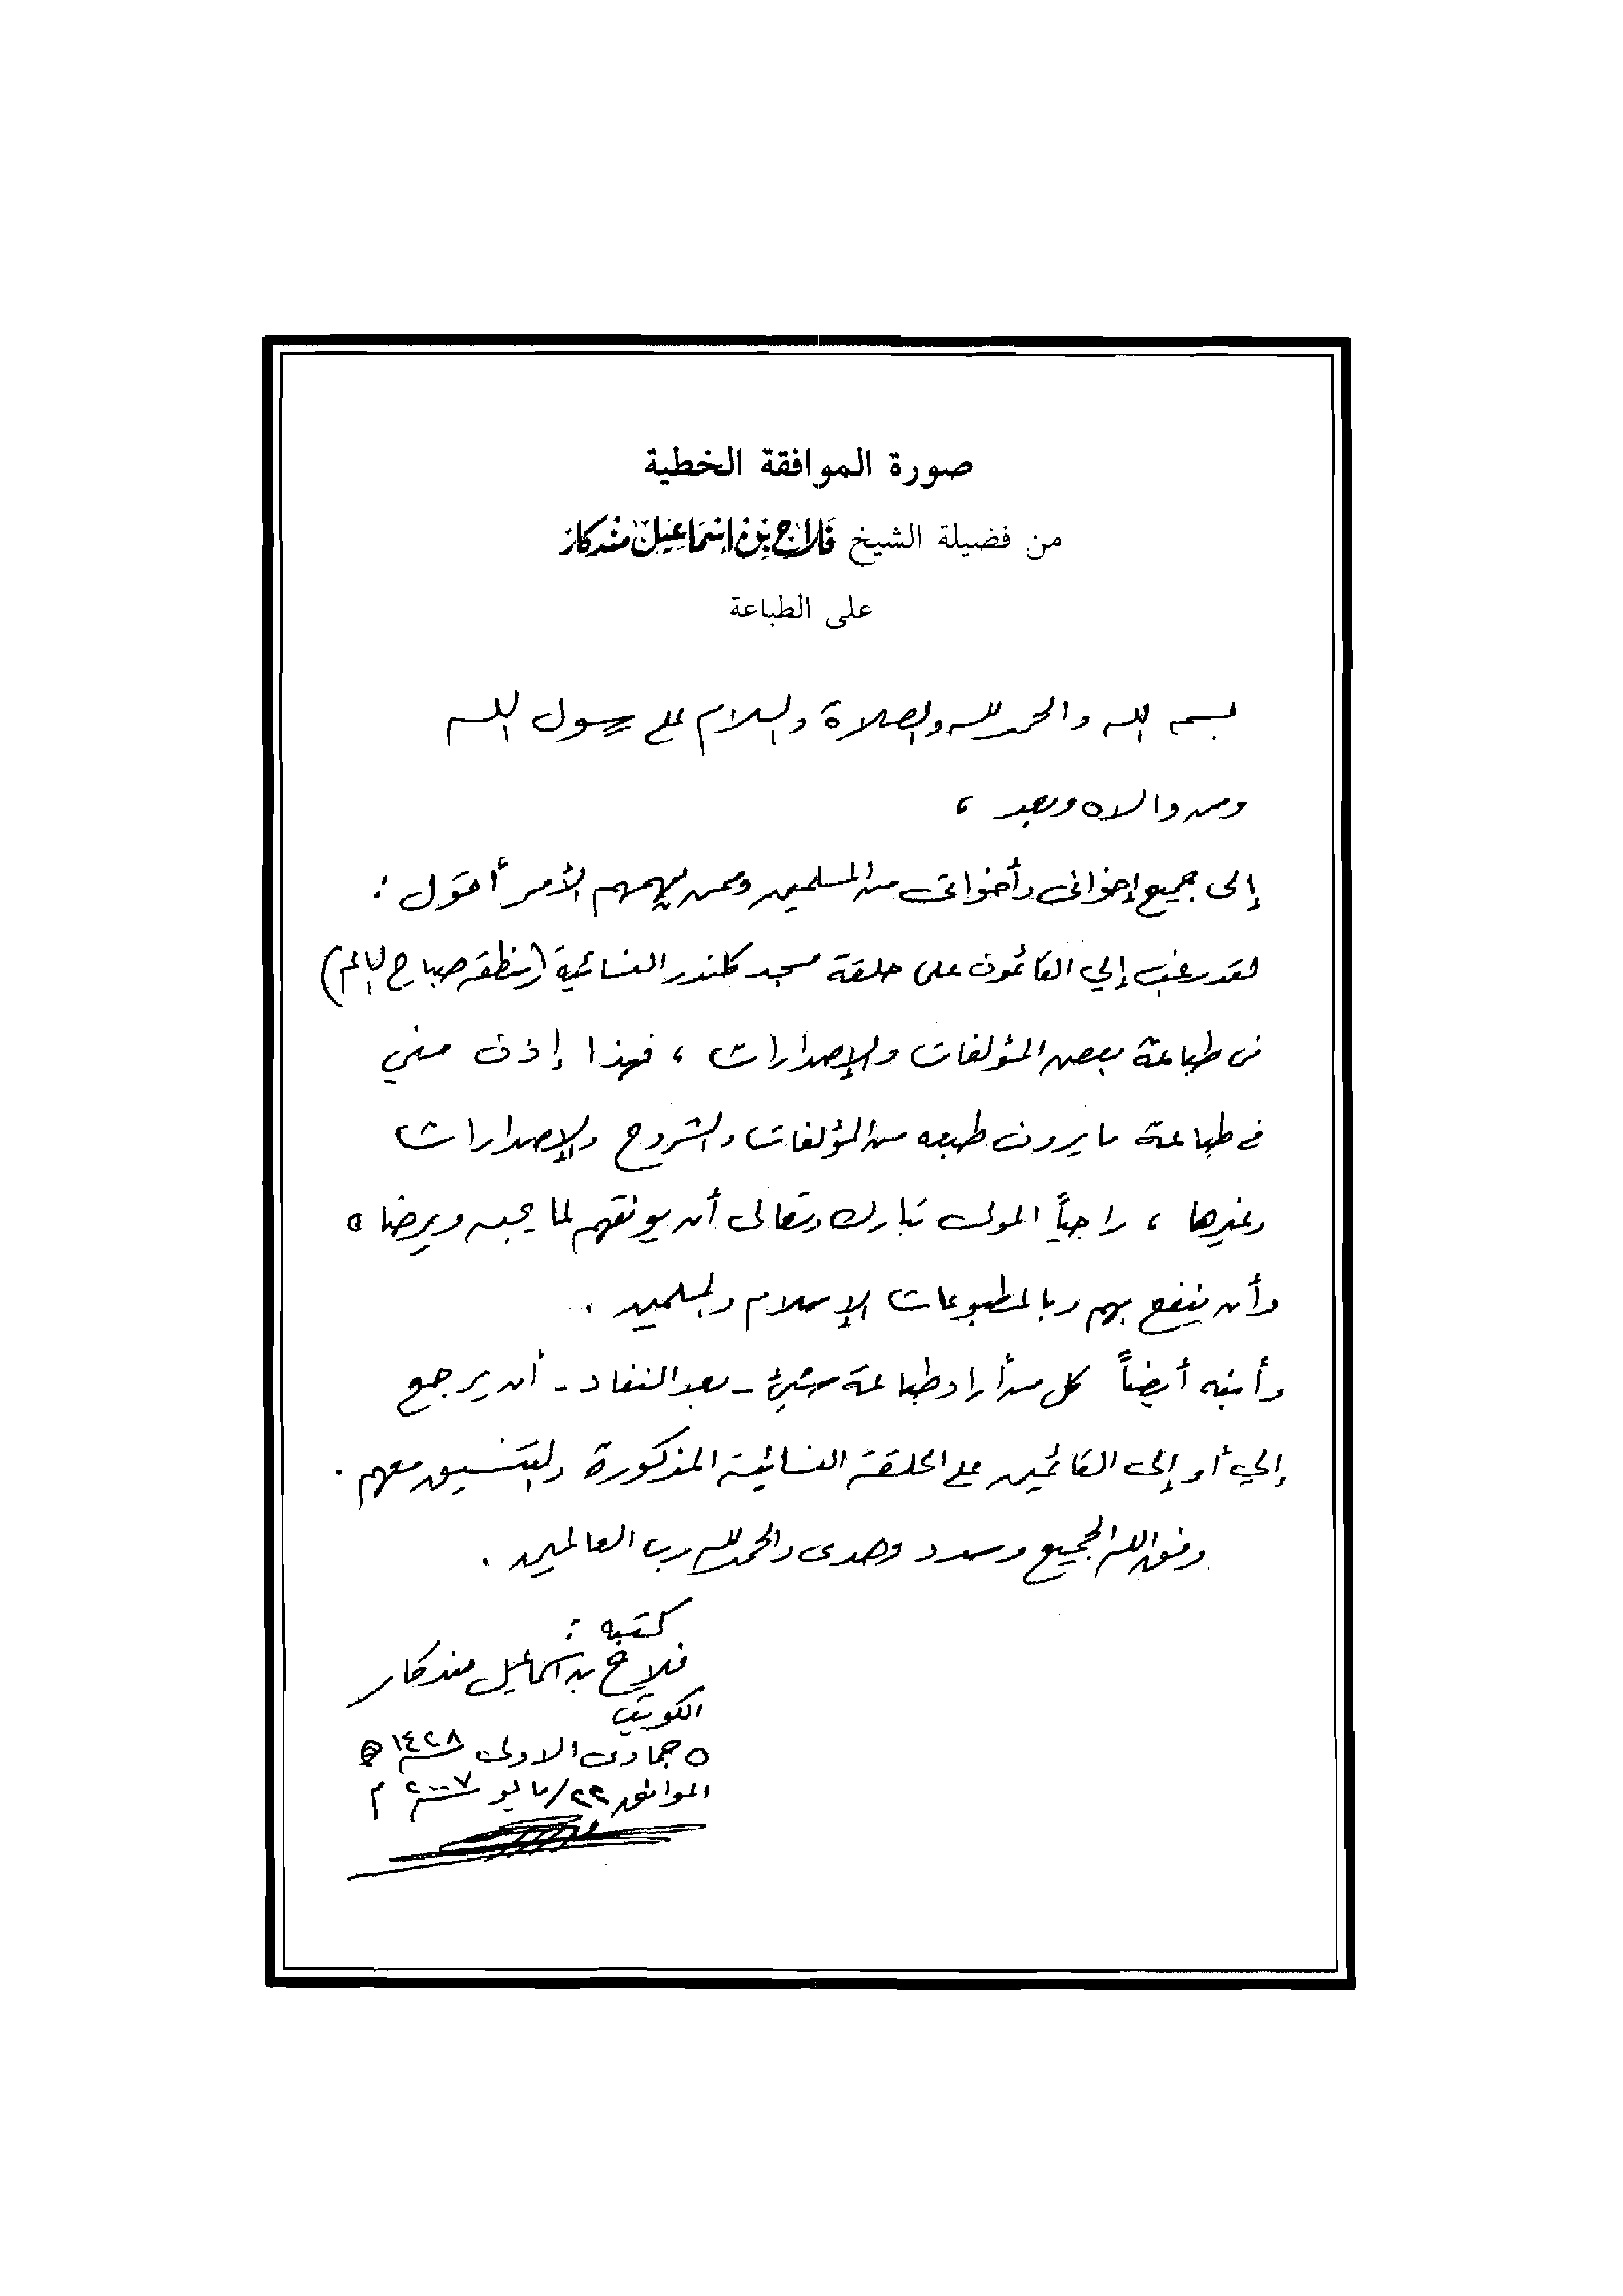 صورة الموافقة الخطية
من فضيلة الشيخ فَلَاح بْن إسْمَاعِيل مَنْدكَار
على الطباعة
بسم الله والحمد لله والصلاة والسلام على رسول الله
ومن والاه وبعد ،
إلى جميع إخواني وأخواتي من المسلمين وممن يهمهم الأمر أقول :
لقد رغب إليّ القائمون على حلقة مسجد كلندر النسائية (منطقة صباح السالم)
في طباعة بعض المؤلفات والإصدارات ، فهذا إذن مني
في طباعة ما يرون طبعه من المؤلفات والشروح والإصدارات
وغيرها ، راجياً المولى تبارك وتعالى أن يوفقهم لما يحبه ويرضاه
وأن ينفع بهم وبالمطبوعات الإسلام والمسلمين ..
وأنبه أيضاً كل من أراد طباعة شيء - بعد النفاد - أن يرجع
إليّ أو إلى القائمين على الحلقة النسائية المذكورة والتنسيق معهم .
وفق الله الجميع وسدد وهدى والحمد لله رب العالمين .
كتبه :
فلاح بن اسماعيل مندكار
الكويت
٥ جمادى الاولى سنة ١٤٢٨ هـ
الموافق ٢٢/مايو سنة ٢٠٠٧ م